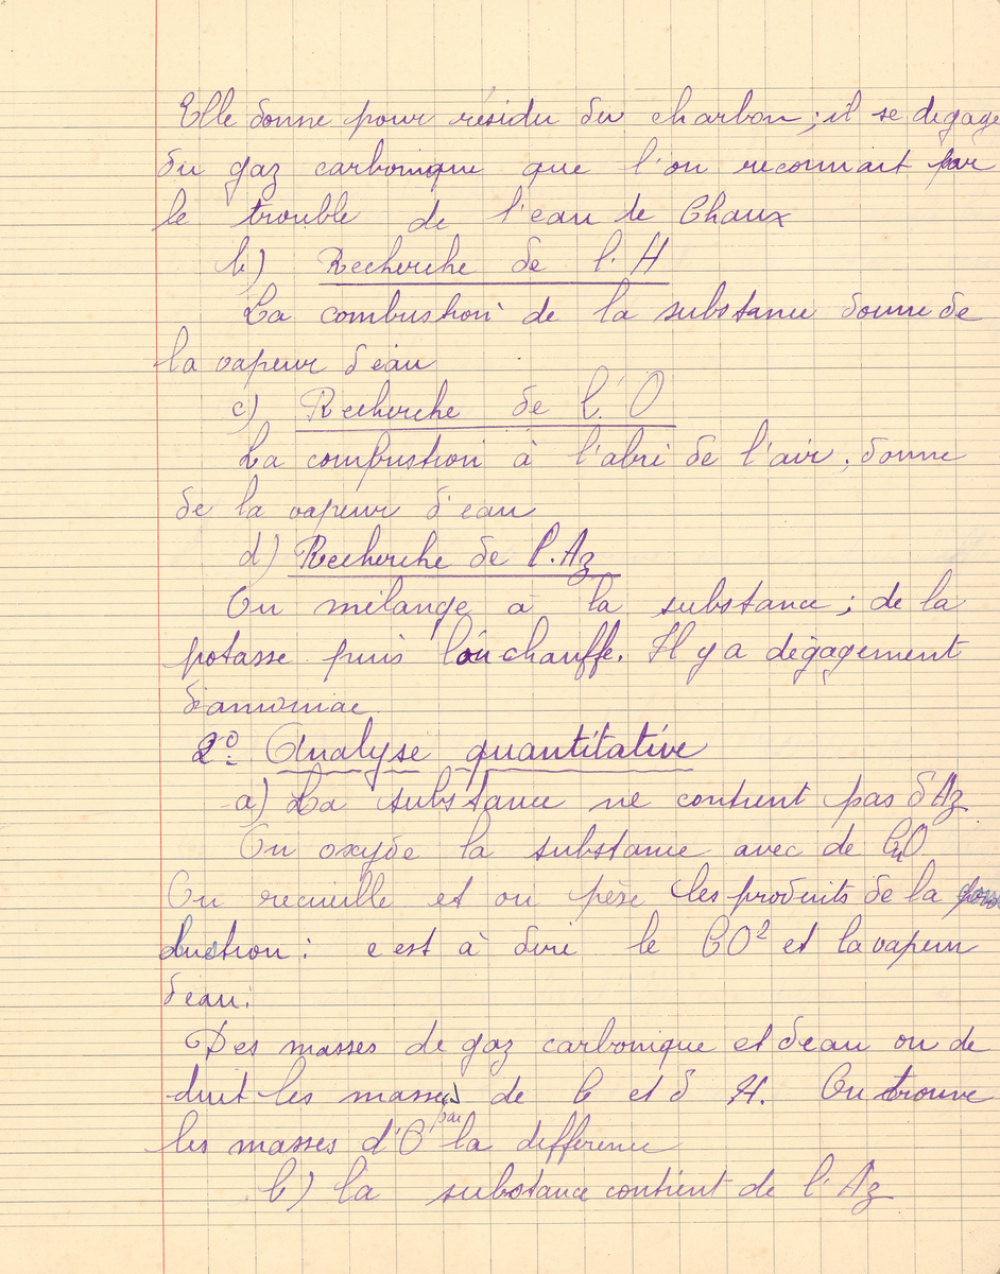 Elle donne pour résidu du charbon ; il se dégage
du gaz carbonique que l'on reconnait par
le trouble de l'eau de Chaux
b) Recherche de l'H
La combustion de la substance donne de
la vapeur d'eau
c) Recherche de l'O
La combustion à l'abri de l'air, donne
de la vapeur d'eau
d) Recherche de l'Az
On mélange à la substance ; de la
potasse puis l'on chauffe. Il y a dégagement
d'amoniac
2º Analyse quantitative
a) La substance ne contient pas d'Az
On oxyde la substance avec de CuO
On recueille et on pèse les produits de la
duction : c'est à dire le CO² et la vapeur
d'eau.
Des masses de gaz carbonique et d'eau on de
duit les masses de C et d'H. On trouve
les masses d'O par la différence
b) la substance contient de l'Az